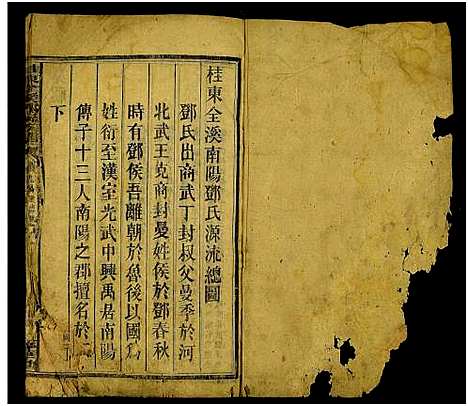 桂東全溪南陽鄧氏源流總圖
鄧氏出商武丁封叔父曼季於河
北武王克商封曼姓侯於鄧春秋
時有鄧侯吾離朝於魯後以國為
姓衍至漢室光武中興禹居南陽
傳子十三人南陽之郡擅名於
下